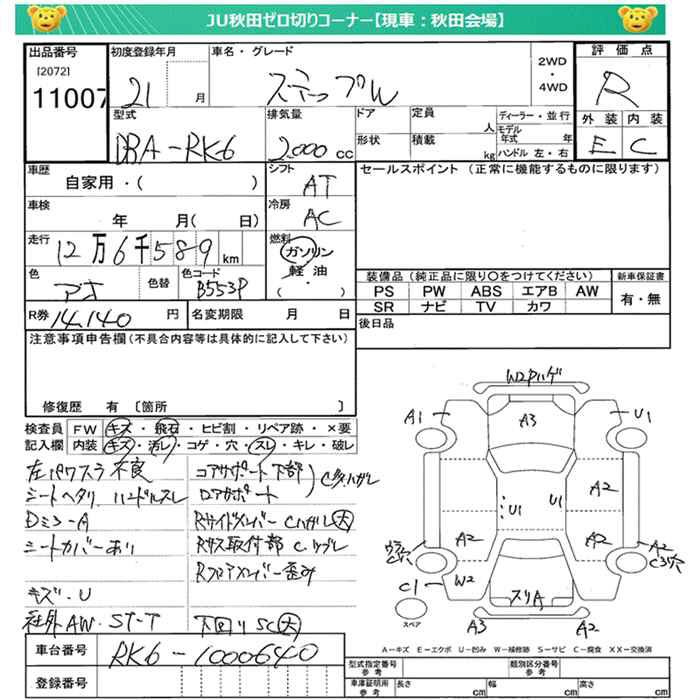 JU秋田ゼロ切りコーナー【現車：秋田会場】
出品番号
[2072]
11007
初度登録年月
21 月
車名・グレード
ステップW
2WD
・
4WD
評価点
R
外装 内装
E C
型式
DBA-RK6
排気量
2,000 cc
ドア
形状
定員
人
積載
kg
ディーラー・並行
モデル年式 年
ハンドル 左・右
車歴
自家用・( )
シフト
AT
車検
年 月( 日)
冷房
AC
走行
12万6千589km
燃料
ガソリン
軽油
( )
色
アオ
色替
色コード
B553P
R券 14,140 円
名変期限 月 日
セールスポイント (正常に機能するものに限ります)
装備品 (純正品に限り○をつけてください)
PS PW ABS エアB AW
SR ナビ TV カワ
新車保証書
有・無
後日品
注意事項申告欄(不具合内容等は具体的に記入して下さい)
修復歴 有 〔箇所 〕
検査員記入欄
FW キズ・飛石・ヒビ割・リペア跡・×要
内装 キズ・汚レ・コゲ・穴・スレ・キレ・破レ
左パワスラ不良
シートヘタリ ハンドルスレ
Dミラ-A
シートカバーあり
キズ・U
社外AW. ST-T
コアサポート下部
ロアサポート
Rサイドメンバー Cハガレ大
Rサス取付部 C.
Rフロアメンバー歪み
下回りSC大
W2Pハゲ
A1
A3
U1
U1
U1
A2
A2
A2
A2
C3穴
C1
W2
スリA
A3
A2
スペア
A－キズ E－エクボ U－凹み W－補修跡 S－サビ C－腐食 XX－交換済
車台番号
RK6-1000640
登録番号
型式指定番号
参考
類別区分番号
参考
車庫証明用
参考
長さ cm
幅 cm
高さ cm